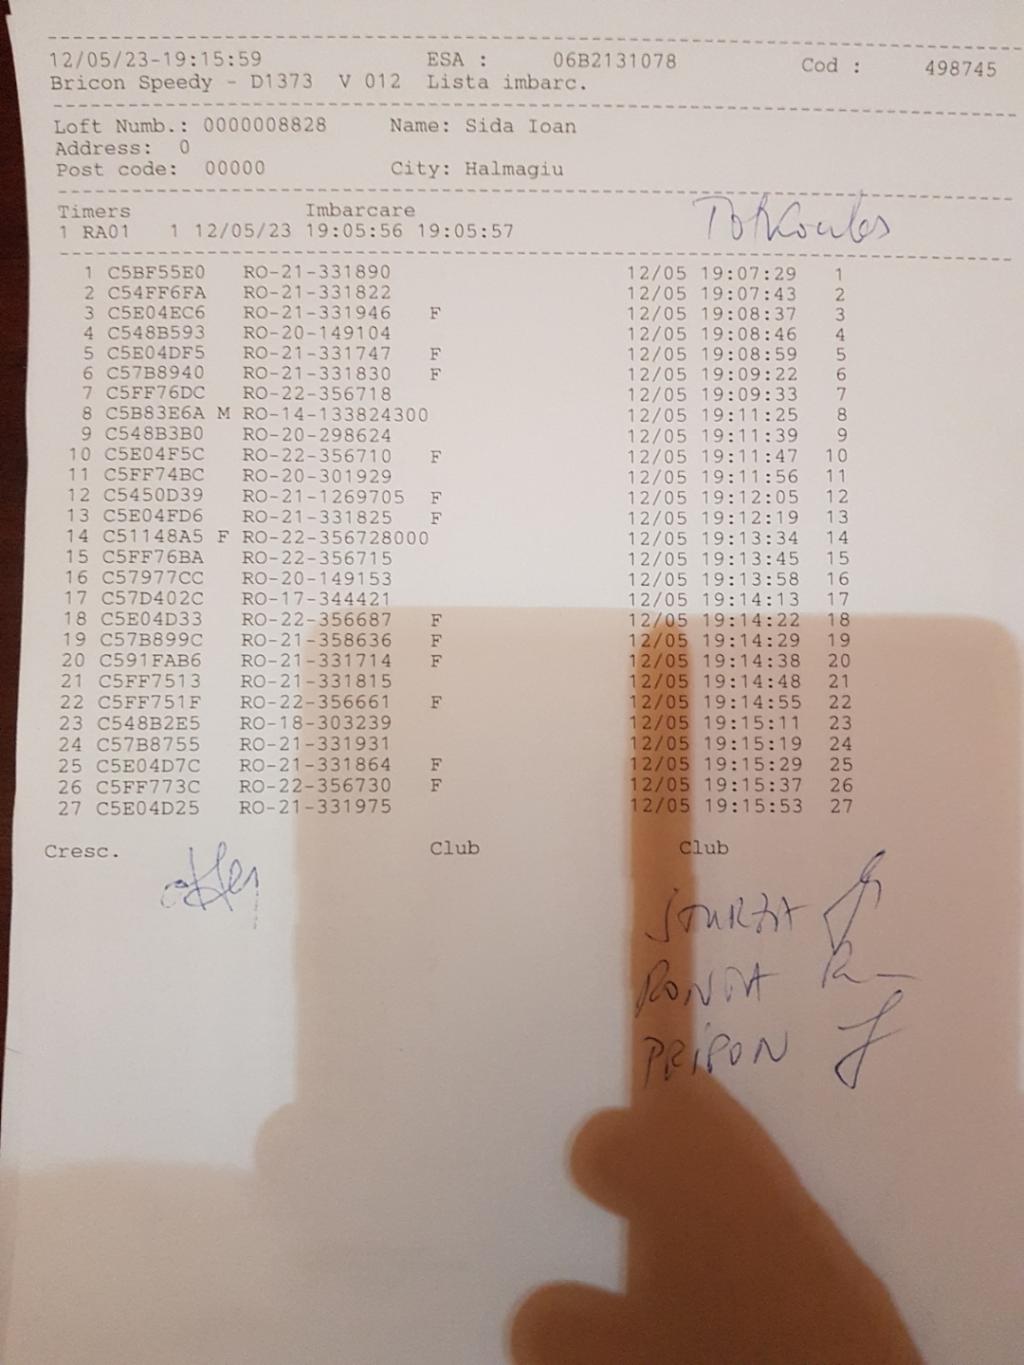 12/05/23-19:15:59 ESA : 06B2131078 Cod : 498745
Bricon Speedy - D1373 V 012 Lista imbarc.
Loft Numb.: 0000008828 Name: Sida Ioan
Address: 0
Post code: 00000 City: Halmagiu
Timers Imbarcare
1 RA01 1 12/05/23 19:05:56 19:05:57
1 C5BF55E0 RO-21-331890 12/05 19:07:29 1
2 C54FF6FA RO-21-331822 12/05 19:07:43 2
3 C5E04EC6 RO-21-331946 F 12/05 19:08:37 3
4 C548B593 RO-20-149104 12/05 19:08:46 4
5 C5E04DF5 RO-21-331747 F 12/05 19:08:59 5
6 C57B8940 RO-21-331830 F 12/05 19:09:22 6
7 C5FF76DC RO-22-356718 12/05 19:09:33 7
8 C5B83E6A M RO-14-133824300 12/05 19:11:25 8
9 C548B3B0 RO-20-298624 12/05 19:11:39 9
10 C5E04F5C RO-22-356710 F 12/05 19:11:47 10
11 C5FF74BC RO-20-301929 12/05 19:11:56 11
12 C5450D39 RO-21-1269705 F 12/05 19:12:05 12
13 C5E04FD6 RO-21-331825 F 12/05 19:12:19 13
14 C51148A5 F RO-22-356728000 12/05 19:13:34 14
15 C5FF76BA RO-22-356715 12/05 19:13:45 15
16 C57977CC RO-20-149153 12/05 19:13:58 16
17 C57D402C RO-17-344421 12/05 19:14:13 17
18 C5E04D33 RO-22-356687 F 12/05 19:14:22 18
19 C57B899C RO-21-358636 F 12/05 19:14:29 19
20 C591FAB6 RO-21-331714 F 12/05 19:14:38 20
21 C5FF7513 RO-21-331815 12/05 19:14:48 21
22 C5FF751F RO-22-356661 F 12/05 19:14:55 22
23 C548B2E5 RO-18-303239 12/05 19:15:11 23
24 C57B8755 RO-21-331931 12/05 19:15:19 24
25 C5E04D7C RO-21-331864 F 12/05 19:15:29 25
26 C5FF773C RO-22-356730 F 12/05 19:15:37 26
27 C5E04D25 RO-21-331975 12/05 19:15:53 27
Cresc. Club Club
STURZA
RONTA
PRIPON